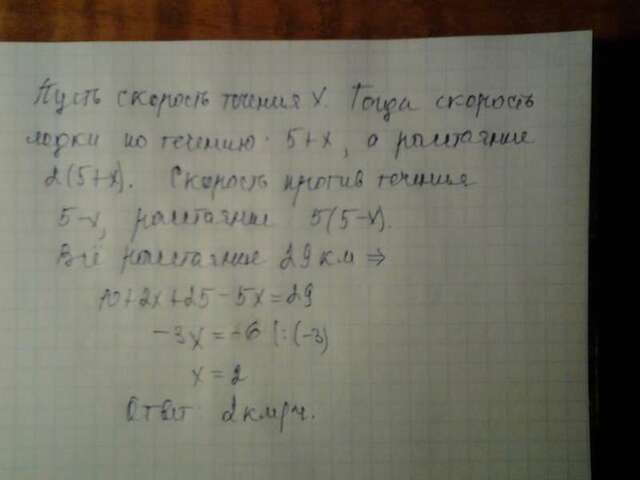 Пусть скорость течения x. Тогда скорость
лодки по течению 5+x, а расстояние
2(5+x). Скорость против течения
5-x, расстояние 5(5-x).
Всё расстояние 29 км ⇒
10+2x+25-5x=29
-3x=-6 |:(-3)
x=2
Ответ 2 км/ч.